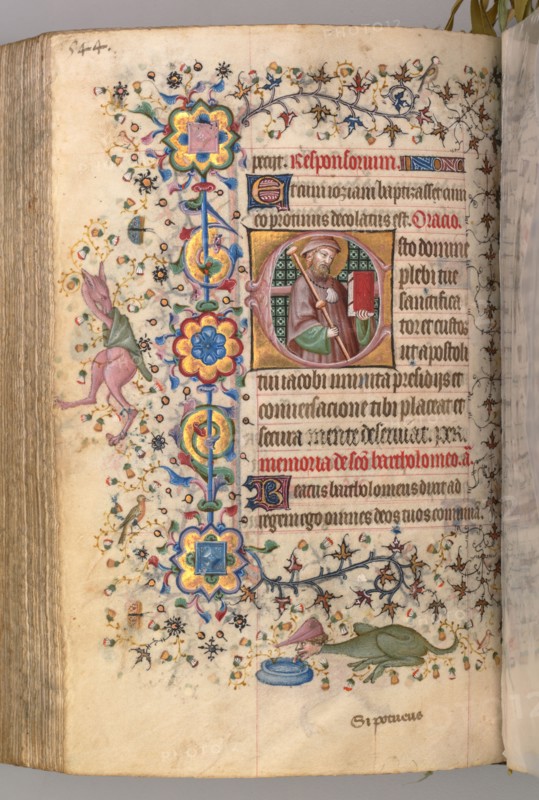 544.
PHOTO12
Responsorium.
Et cum ioziam baptizasset cum
eo protinus decolatus est. Oracio.
Esto domine
plebi tue
sanctifica
tor et custos
ut apostoli
tui iacobi munita presidijs et
conversacione tibi placeat et
secura mente deserviat. per.
memoria de sco bartholomeo. a.
Beatus bartholomeus dixit ad
regem ego omnes deos tuos
Si potueris